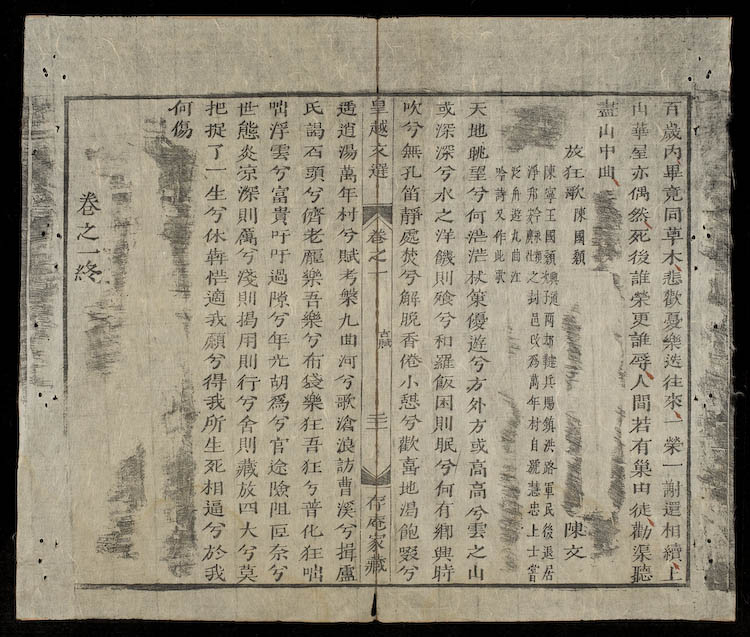 百歲內畢竟同草木悲歡憂樂迭往來一榮一謝還相續上
山華屋亦偶然死後誰榮更誰辱人間若有巢由徒勸渠聽
盡山中曲
放狂歌 陳國顙 陳文
陳寧王國顙 兩却韃兵賜鎮洪路軍民後退居
淨邦 社之封邑改為萬年村自號慧忠上士嘗
泛舟遊九曲江
吟詩又作此歌
天地眺望兮何茫茫杖策優遊兮方外方或高高兮雲之山
或深深兮水之洋饑則飱兮和羅飯困則眠兮何有鄉興時
吹兮無孔笛靜處焚兮解脫香倦小憩兮歡喜地渴飽啜兮
皇越文選 卷之一 古賦 三二 存庵家藏
逍遙湯萬年村兮賦考槃九曲河兮歌滄浪訪曹溪兮揖盧
氏謁石頭兮儕老龐樂吾樂兮布袋樂狂吾狂兮普化狂咄
咄浮雲兮富貴吁吁過隙兮年光胡爲兮官途險阻叵奈兮
世態炎凉深則厲兮淺則揭用則行兮舍則藏放四大兮莫
把捉了一生兮休犇惜適我願兮得我所生死相逼兮於我
何傷
卷之一終